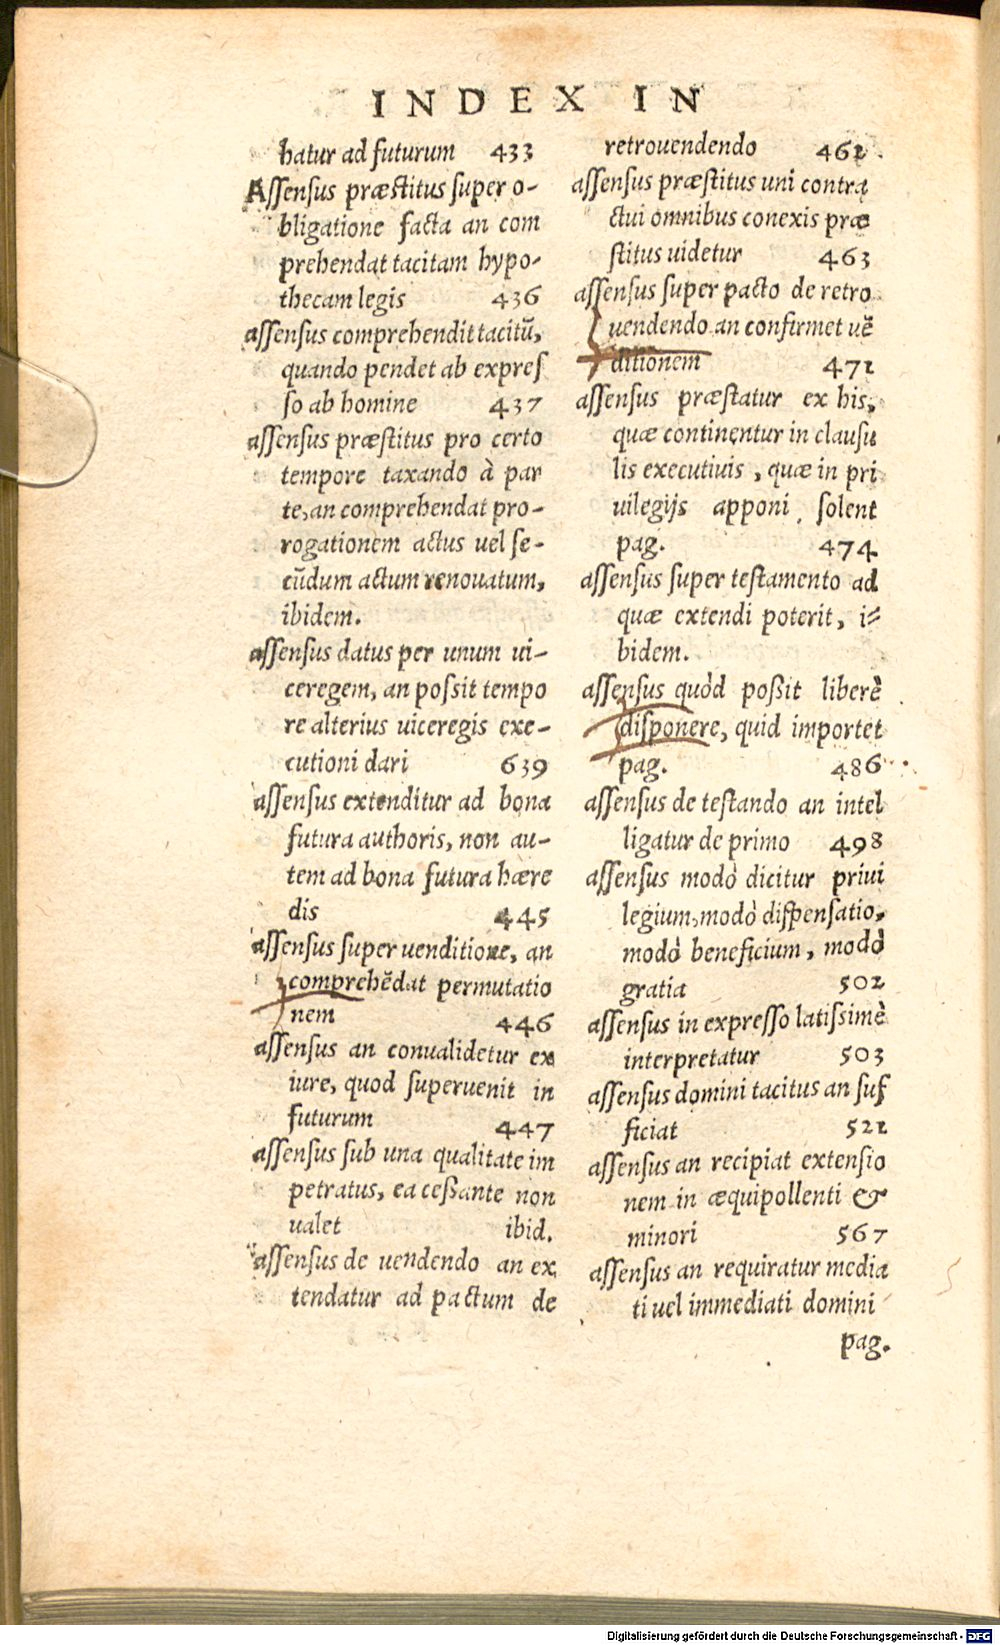 INDEX IN
hatur ad futurum 433
Assensus præstitus super o-
bligatione facta an com
prehendat tacitam hypo-
thecam legis 436
assensus comprehendit tacitū,
quando pendet ab expres
so ab homine 437
assensus præstitus pro certo
tempore taxando à par
te, an comprehendat pro-
rogationem actus uel se-
cūdum actum renouatum,
ibidem.
assensus datus per unum ui-
ceregem, an possit tempo
re alterius uiceregis exe-
cutioni dari 639
assensus extenditur ad bona
futura authoris, non au-
tem ad bona futura hære
dis 445
assensus super uenditione, an
comprehēdat permutatio
nem 446
assensus an conualidetur ex
iure, quod superuenit in
futurum 447
assensus sub una qualitate im
petratus, ea ceßante non
ualet ibid.
assensus de uendendo an ex
tendatur ad pactum de
retrouendendo 461
assensus præstitus uni contra
ctui omnibus conexis præ
stitus uidetur 463
assensus super pacto de retro
uendendo an confirmet uē
ditionem 471
assensus præstatur ex his,
quæ continentur in clausu
lis executiuis, quæ in pri
uilegijs apponi solent
pag. 474
assensus super testamento ad
quæ extendi poterit, i-
bidem.
assensus quòd poßit liberè
disponere, quid importet
pag. 486
assensus de testando an intel
ligatur de primo 498
assensus modò dicitur priui
legium, modò dispensatio,
modò beneficium, modò
gratia 502
assensus in expresso latissimè
interpretatur 503
assensus domini tacitus an suf
ficiat 521
assensus an recipiat extensio
nem in æquipollenti &
minori 567
assensus an requiratur media
ti uel immediati domini
pag.
Digitalisierung gefördert durch die Deutsche Forschungsgemeinschaft - DFG